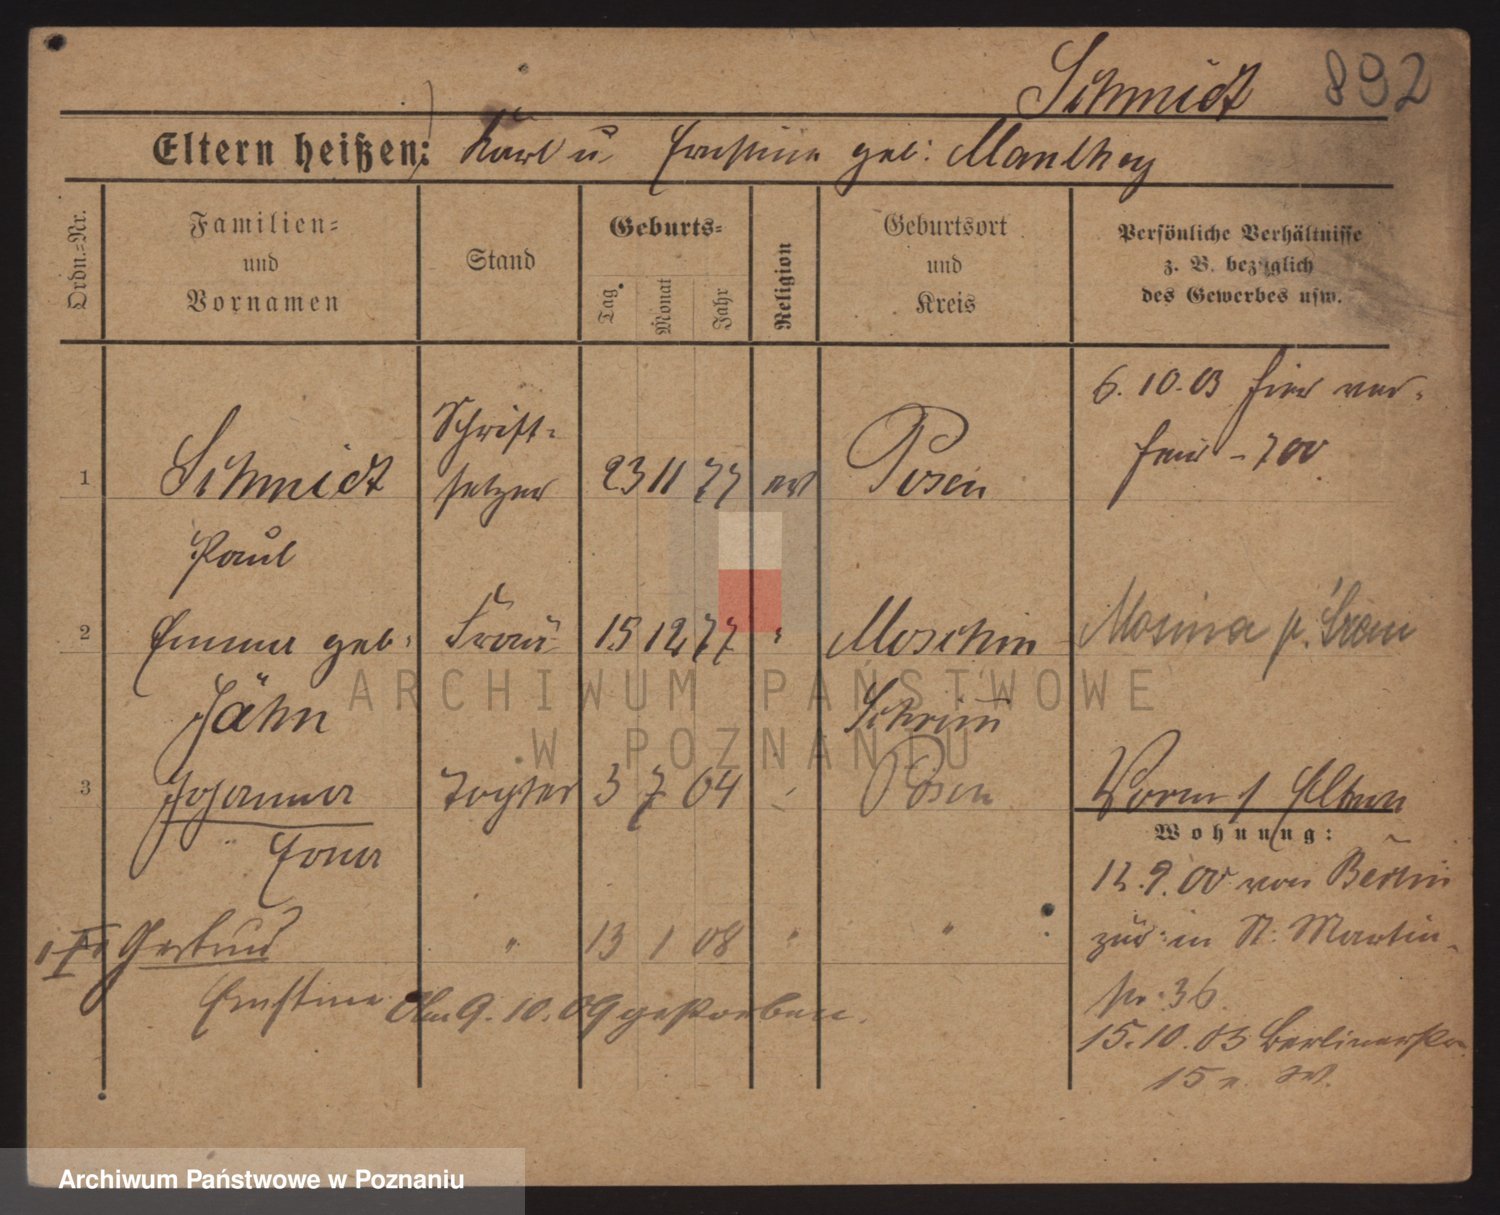 Schmidt 892
Eltern heißen: Karl u. Ernstine geb: Manthey
Ordn.-Nr.
Familien-
und
Vornamen
Stand
Geburts-
Tag
Monat
Jahr
Religion
Geburtsort
und
Kreis
Persönliche Verhältnisse
z. B. bezüglich
des Gewerbes usw.
6. 10. 03 hier ver-
heir
1 Schmidt Schrift- 23 11 77 ev Posen
setzer
Paul
2 Emma geb. Frau 15 12 77 " Moschin Mosina p. Śrem
Jähn Schrimm
3 Johanna Tochter 3 7 04 Posen Worm s Eltern
Erna
Wohnung:
12. 9. 00 von Berlin
Gertrud " 13 1 08 " " zur in St: Martin-
Ernstine Am 9. 10. 09 gestorben. str. 36.
15. 10. 03 Berlinerstr.
15
ARCHIWUM PAŃSTWOWE
W POZNANIU
Archiwum Państwowe w Poznaniu